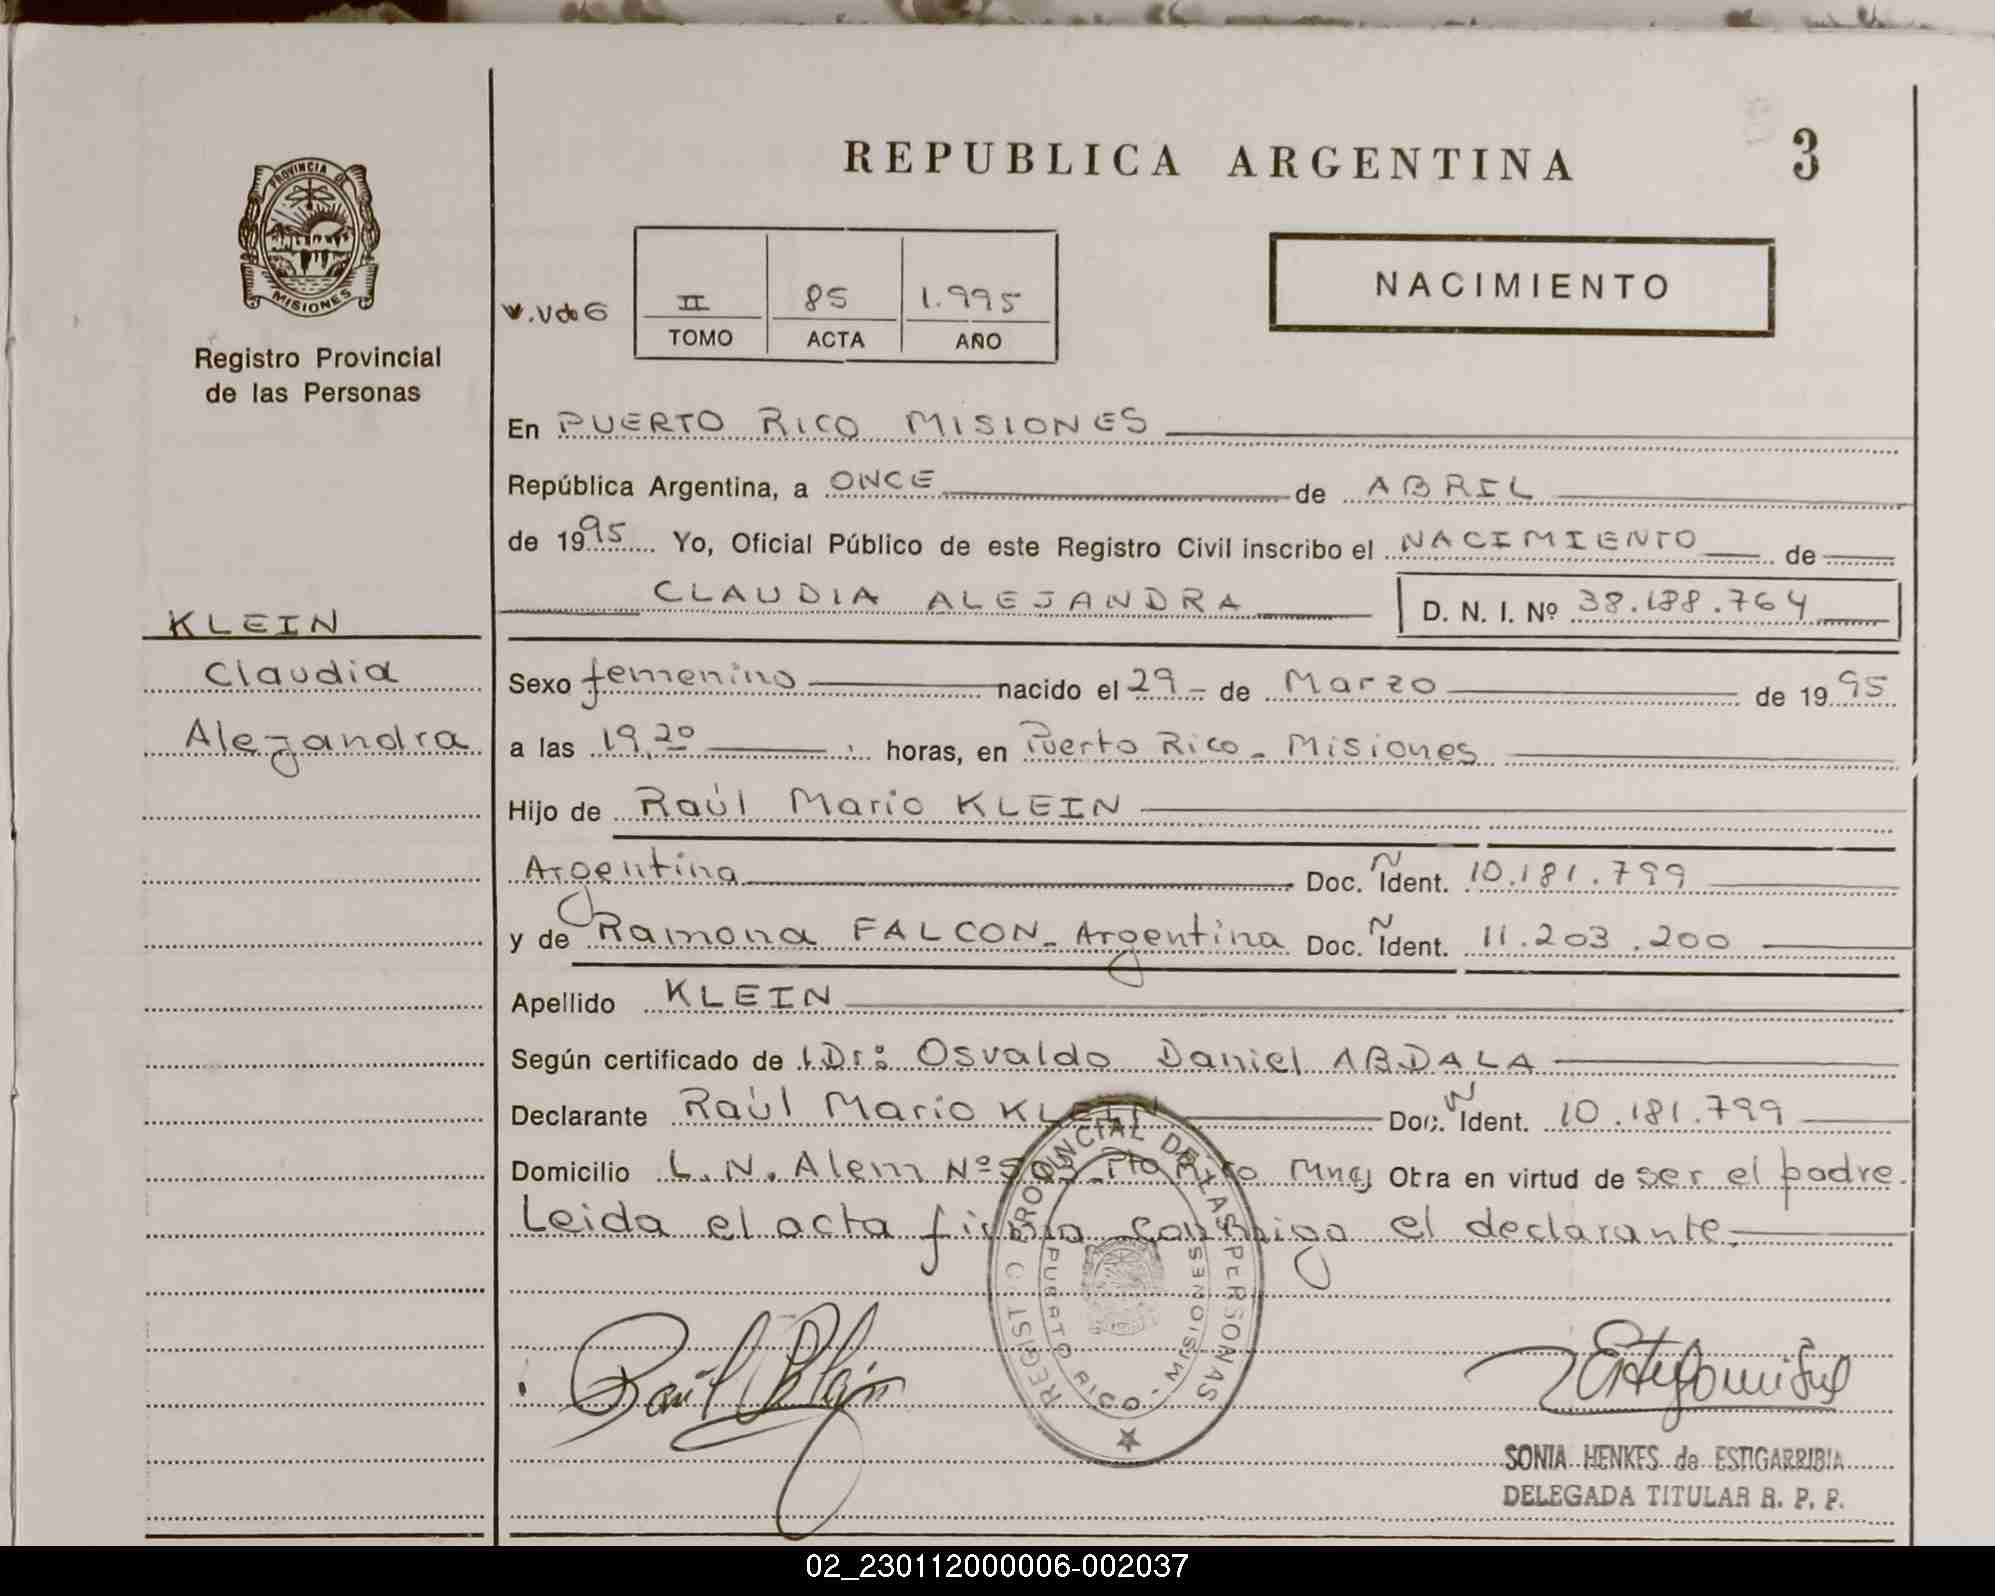 REPUBLICA ARGENTINA
3
PROVINCIA DE
MISIONES
Registro Provincial
de las Personas
II 85 1.995
TOMO ACTA AÑO
NACIMIENTO
En PUERTO RICO MISIONES
República Argentina, a ONCE de ABRIL
de 1995 Yo, Oficial Público de este Registro Civil inscribo el NACIMIENTO de
CLAUDIA ALEJANDRA D. N. I. Nº 38.188.764
KLEIN
Claudia
Alejandra
Sexo femenino nacido el 29 de Marzo de 1995
a las 19,20 horas, en Puerto Rico - Misiones
Hijo de Raúl Mario KLEIN
Argentina Doc. Ñ Ident. 10.181.799
y de Ramona FALCON - Argentina Doc. Ñ Ident. 11.203.200
Apellido KLEIN
Según certificado de Dr: Osvaldo Daniel ABDALA
Declarante Raúl Mario KLEIN Doc. Ident. 10.181.799
Domicilio L. N. Alem Nº Pto Rico Mnes Otra en virtud de ser el padre.
Leida el acta firma conmigo el declarante.
REGISTRO PROVINCIAL DE LAS PERSONAS
PUERTO RICO - MISIONES
Raúl Klein
SONIA HENKES de ESTIGARRIBIA
DELEGADA TITULAR R. P. P.
02_230112000006-002037